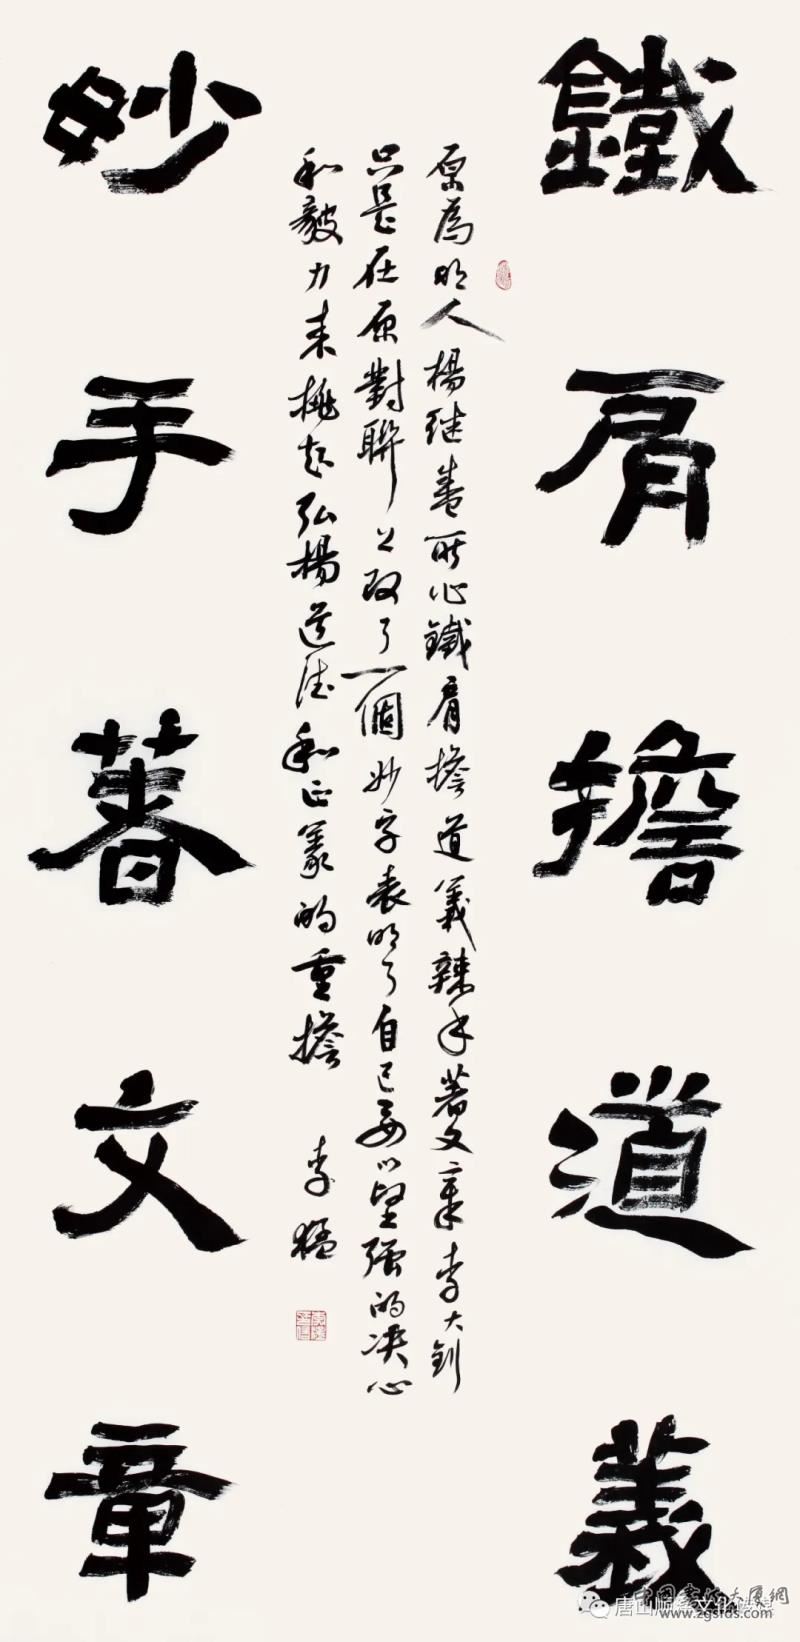 鐵肩擔道義
原為明人楊继盛所作鐵肩擔道義辣手著文章李大釗
只是在原對聯上改了一個妙字表明了自己要以堅強的决心
和毅力来挑起弘楊道德和正義的重擔
李猛
妙手著文章
中國書法大厦網
www.zgsfds.com